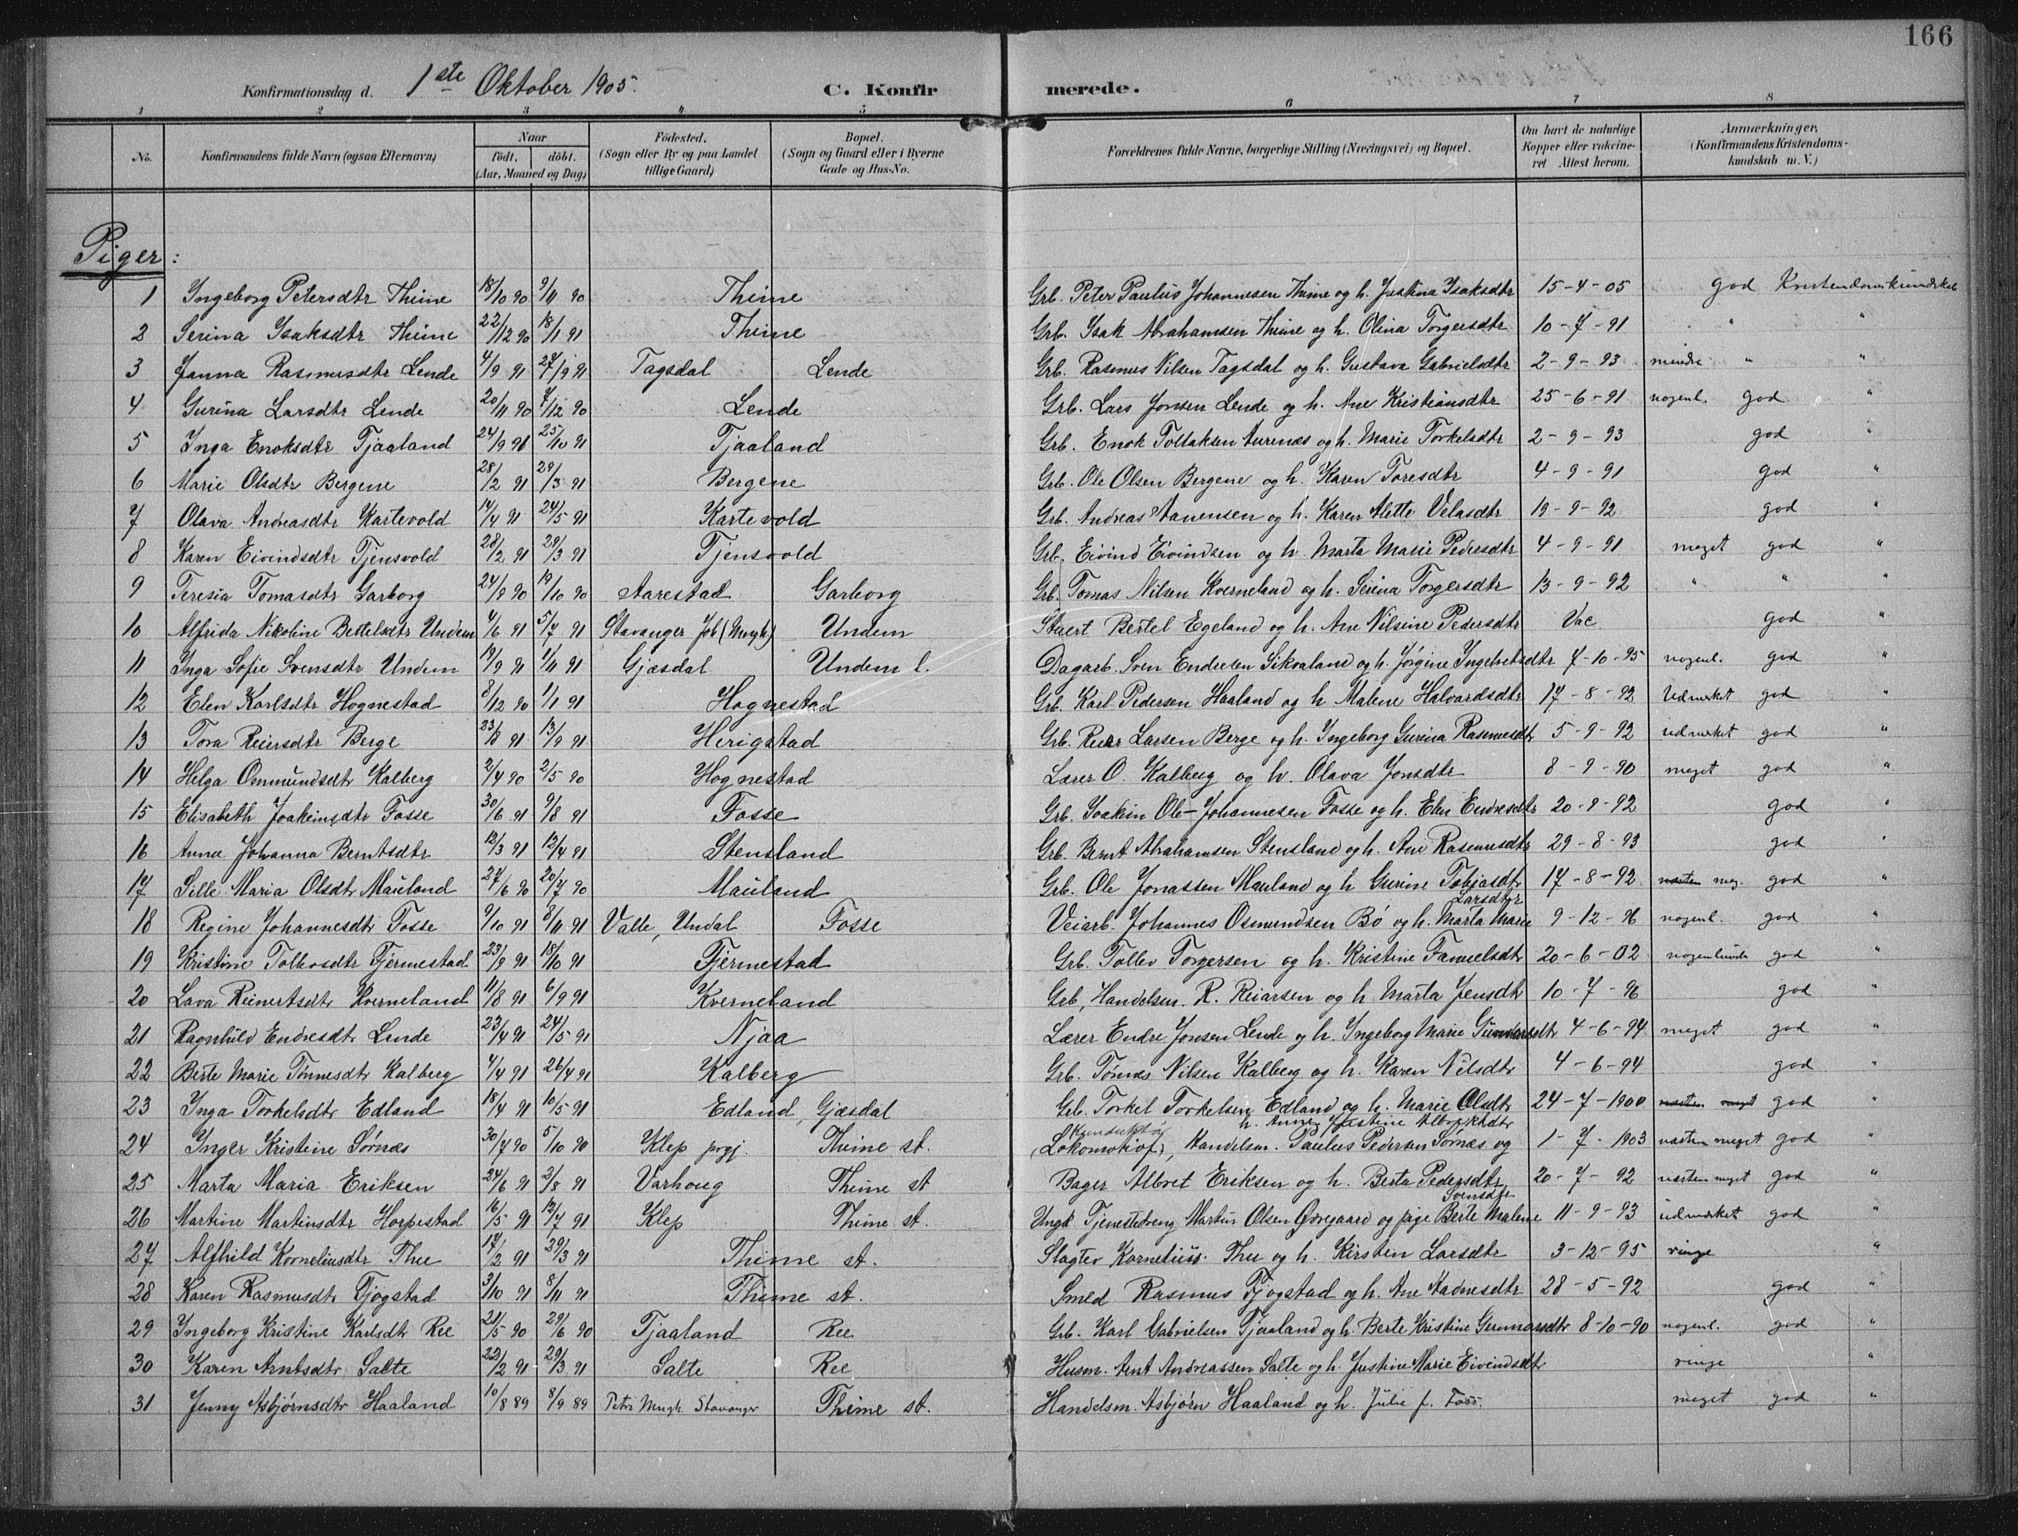 166
Konfirmationsdag d. 1ste Oktober 1905. C. Konfir merede.
1 2 3 4 5 6 7 8
No. Konfirmandens fulde Navn (ogsaa Efternavn) Naar födt. döbt. (Aar, Maaned og Dag) Födested. (Sogn eller By og paa Landet tillige Gaard) Bopæl. (Sogn og Gaard eller i Byerne Gade og Hus-No. Forældrenes fulde Navne, borgerlige Stilling (Næringsvei) og Bopæl. Om havt de naturlige Kopper eller vakcineret Attest herom. Anmærkninger. (Konfirmandens Kristendomskundskab m. V.)
Piger:
1 Ingeborg Petersdtr Thime 18/10 90 9/11 90 Thime Grb. Peter Paulus Johannesen Thime og h. Justina Isaksdtr 15-4-05 god Kristendomskundskab
2 Serina Isaksdtr Thime 22/12 90 18/1 91 Thime Grb. Isak Abrahamsen Thime og h. Olina Torgersdtr 10-7-91 " "
3 Janna Rasmusdtr Lende 4/9 91 27/9 91 Tagsdal Lende Grb. Rasmus Nilsen Tagsdal og h. Gustava Gabrielsdtr 2-9-93 mindre " "
4 Gurina Larsdtr Lende 20/11 90 7/12 90 Lende Grb. Lars Jonsen Lende og h. Ane Kristiansdtr 25-6-91 nogenl. god "
5 Inga Enoksdtr Tjaaland 24/9 91 25/10 91 Tjaaland Grb. Enok Tostaksen Aurenes og h. Marie Torkelsdtr 2-9-93 god "
6 Marie Olsdtr Bergene 28/2 91 29/3 91 Bergene Grb. Ole Olsen Bergene og h. Karen Toresdtr 4-9-91 god "
7 Olava Andreasdtr Kartevold 14/4 91 24/5 91 Kartevold Grb. Andreas Aanensen og h. Karen Alette Velasdtr 19-9-92 god "
8 Karen Eivindsdtr Tjensvold 28/2 91 29/3 91 Tjensvold Grb. Eivind Eivindsen og h. Marta Marie Pedersdtr 4-9-91 meget god "
9 Teresia Tomasdtr Garborg 24/9 90 19/10 90 Aarestad Garborg Grb. Tomas Nilsen Kverneland og h. Serina Torgersdtr 13-9-92 " " "
10 Alfrida Nikoline Bertelsdtr Undem 4/6 91 5/7 91 Stavanger Job (Mngh) Undem Bertel Egeland og h. Ane Nilsine Pedersdtr Vac god "
11 Inga Sofie Svensdtr Undem 19/9 91 1/11 91 Gjæsdal Undem l. Dagarb. Sven Endresen Sikvaland og h. Jørgine Ingebretsdtr 7-10-95 nogenl. god "
12 Elen Karlsdtr Hognestad 8/12 90 1/1 91 Hognestad Grb. Karl Pedersen Haaland og h. Malene Halvardsdtr 17-8-92 Udmerket god "
13 Tora Reiersdtr Berge 23/8 91 13/9 91 Herigstad Grb. Reier Larsen Berge og h. Ingeborg Gurina Rasmusdtr 5-9-92 udmerket god "
14 Helga Ommundsdtr Kalberg 2/4 90 2/5 90 Hognestad Lærer O. Kalberg og h. Olava Jonsdtr 8-9-90 meget god "
15 Elisabeth Joakimsdtr Fosse 30/6 91 9/8 91 Fosse Grb. Joakim Ole-Johannesen Fosse og h. Elen Endresdtr 20-9-92 god "
16 Anna Johanna Berntsdtr 12/3 91 12/4 91 Stensland Grb. Bernt Abrahamsen Stensland og h. Ane Rasmusdtr 29-8-93 god "
17 Sille Maria Olsdtr Mauland 27/6 90 20/7 90 Mauland Grb. Ole Jonassen Mauland og h Gurine Tobjasdtr 17-8-92 næsten meg. god "
18 Regine Johannesdtr Fosse 9/10 91 8/11 91 Valle, Undal Fosse Veiarb. Johannes Osmundsen Bø og h. Marta Marie Larsdtr 9-12-96 nogenl. god "
19 Kristine Tollevsdtr Fjermestad 23/9 91 18/10 91 Fjermestad Grb. Tollev Torgersen og h. Kristine Fanuelsdtr 20-6-02 nogenlunde god "
20 Lava Reinertsdtr Kverneland 11/8 91 6/9 91 Kverneland Grb, Handelsm. R. Reiarsen og h. Marta Jensdtr 10-7-96 god "
21 Ragnhild Endresdtr Lende 23/4 91 24/5 91 Njaa Lærer Endre Jonsen Lende og h. Ingeborg Marie Gundersdtr 4-6-94 meget god "
22 Berte Marie Tønnesdtr Kalberg 4/4 91 26/4 91 Kalberg Grb. Tønnes Nilsen Kalberg og h. Karen Nilsdtr 4-6-94 god "
23 Inga Torkelsdtr Edland 18/4 91 10/5 91 Edland, Gjæsdal Grb. Torkel Torkelsen Edland og h. Marie Olsdtr 24-7-1900 næsten meget god "
24 Inger Kristine Sørnæs 30/7 90 5/10 90 Klep prgj. Thime st. (Lokomotivf), Handelsm. Paulus Pedersen Sørnæs og h. Anne Justine Albrektsdtr 1-7-1903 næsten meget god "
25 Marta Maria Eriksen 24/6 91 2/8 91 Varhoug Thime st Bager Albret Eriksen og h. Berta Pedersdtr 20-7-92 næsten meget god "
26 Martine Martinsdtr Horpestad 16/5 91 12/7 91 Klep Thime st. Ungk Tjenestedreng Martin Olsen Govegaard og pige Berte Malene Svensdtr 11-9-93 udmerket god "
27 Alfhild Korneliusdtr Thu 17/2 91 29/3 91 Thime st. Slagter Kornelius Thu og h. Kirsten Larsdtr 3-12-95 ringe "
28 Karen Rasmusdtr Fjogstad 3/10 91 8/11 91 Thime st. Smed Rasmus Fjogstad og h. Ane Aadnesdtr 28-5-92 god "
29 Ingeborg Kristine Karlsdtr Ree 21/5 90 29/6 90 Tjaaland Ree Grb. Karl Gabrielsen Tjaaland og h. Berte Kristine Gunnarsdtr 8-10-90 nogenl. god "
30 Karen Arntsdtr Salte 22/2 91 29/3 91 Salte Ree Husm. Arnt Andreassen Salte og h. Justine Marie Eivindsdtr ringe "
31 Jenny Asbjørnsdtr Haaland 10/8 89 8/9 89 Petri Mngh. Stavanger Thime st. Handelsm. Asbjørn Haaland og h. Julie f. Foss. meget god "